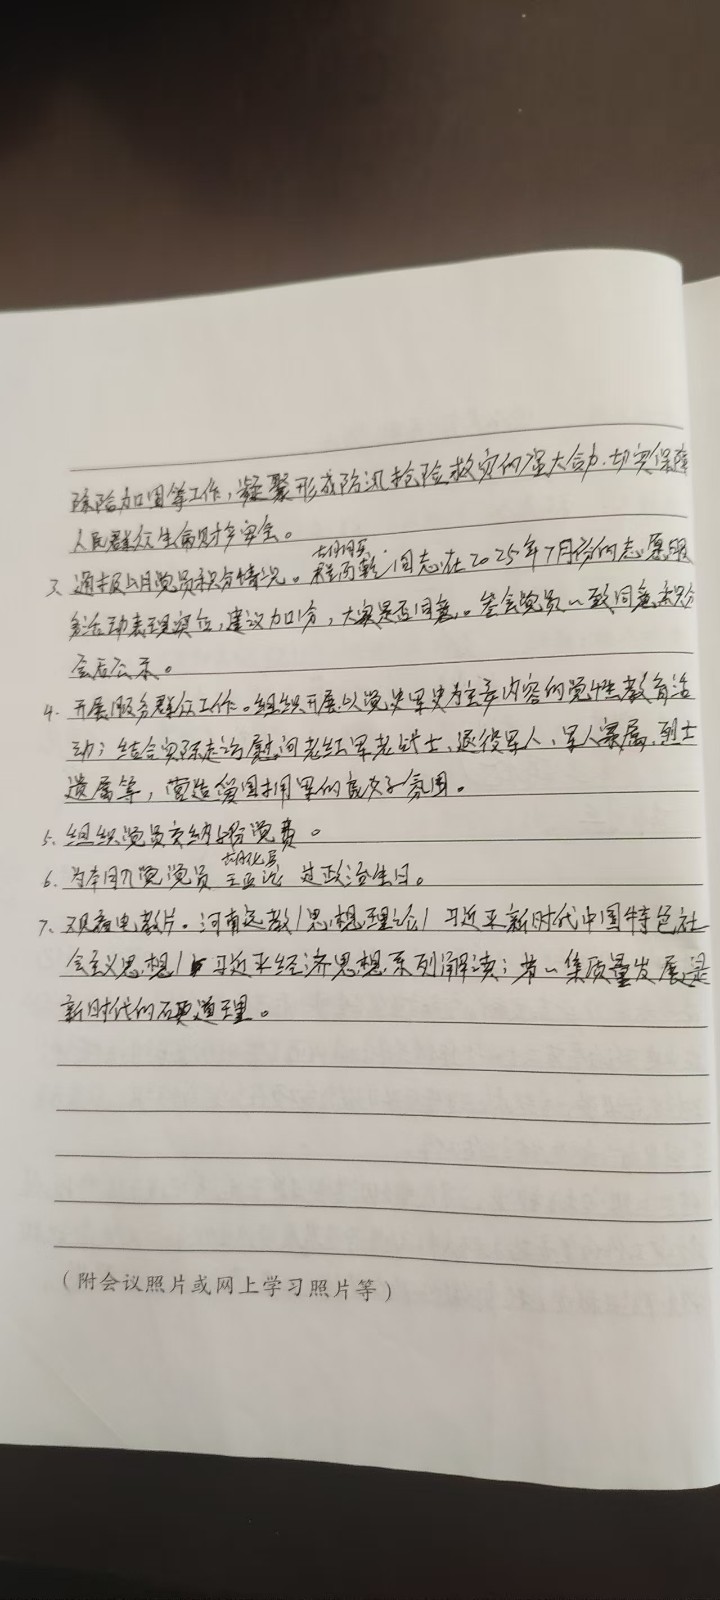 除险加固等工作，凝聚形成防汛抢险救灾的强大合力，切实保障
人民群众生命财产安全。
3、通报上月党员积分情况。 同志在2025年7月份的志愿服
务活动表现突出，建议加分，大家是否同意。参会党员一致同意，积分
会后公示。
4、开展服务群众工作。组织开展以党史军史为主要内容的党性教育活
动；结合实际走访慰问老红军老战士、退役军人、军人家属、烈士
遗属等，营造爱国拥军的良好氛围。
5、组织党员交纳 党费。
6、为本月入党党员 过政治生日。
7、观看电教片。河南远教/思想理论/习近平新时代中国特色社
会主义思想/习近平经济思想系列解读；第一集质量发展是
新时代的硬道理。
（附会议照片或网上学习照片等）